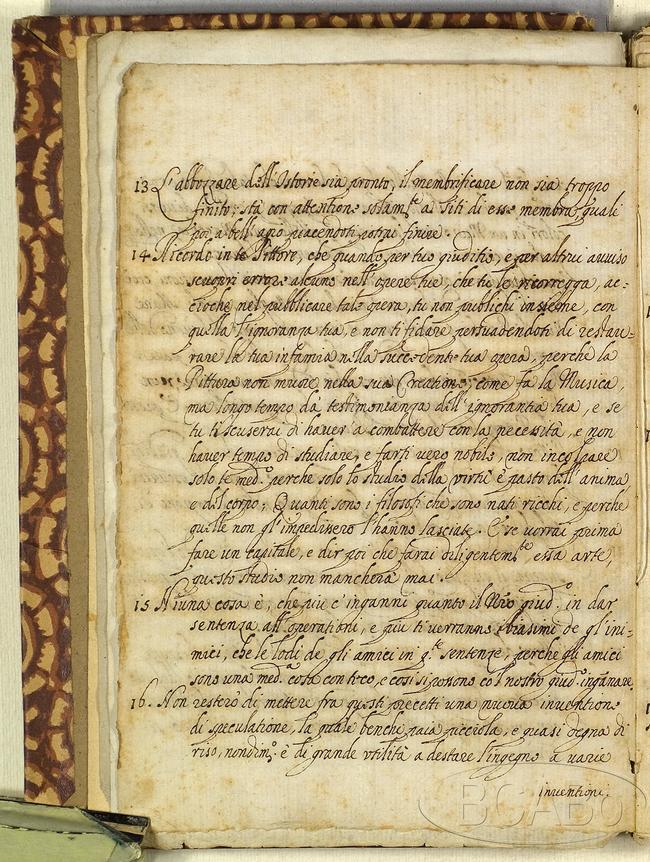 13 L'abbozzare dell'Istorie sia pronto, il membrificare non sia troppo
finito; stà con attentione solam.te a' siti di esse membra, quali
poi a bell'agio piacendoti potrai finire
14 Ricordo in te Pittore, che quando per tuo giuditio, e per altrui auuiso
scuopri errore alcuno nell'opere tue, che tu le ricorregga, ac=
cioche nel pubblicare tale opera, tu non publichi insieme, con
quella l'ignoranza tua, e non ti fidare persuadendoti di restau=
rare la tua infamia nella succedente tua opera, perche la
Pittura non muore nella sua Creatione, come fa la Musica,
ma longo tempo dà testimonianza dell'ignorantia tua, e se
tu ti scuserai di hauer' a combattere con la necessità, e non
hauer tempo di studiare, e farti uero nobile, non incolpare
solo te med.o perche solo lo studio della virtù è pasto dell'anima
e del corpo; Quanti sono i filosofi che sono nati ricchi, e perche
quelle non gl'impedissero l'hanno lasciate. E se uorrai prima
fare un capitale, e dir poi che farai diligentem.te essa arte,
questo studio non mancherà mai.
15 Niuna cosa è, che piu c'inganni quanto il Nro giud.o in dar
sentenza all'operationi, e piu ti verranno i biasimi de gl'ini=
mici, che le lodi de gli amici in q.te sentenze, perche gli amici
sono una med.a cosa con teco, e così si possono co'l nostro giud.o inganare
16. Non resterò di mettere fra questi precetti una nuoua inuentione
di speculatione, la quale benche paia picciola, e quasi degna di
riso, nondim.o è di grande vtilità a destare l'ingegno a uarie
inuentioni.
BCABo